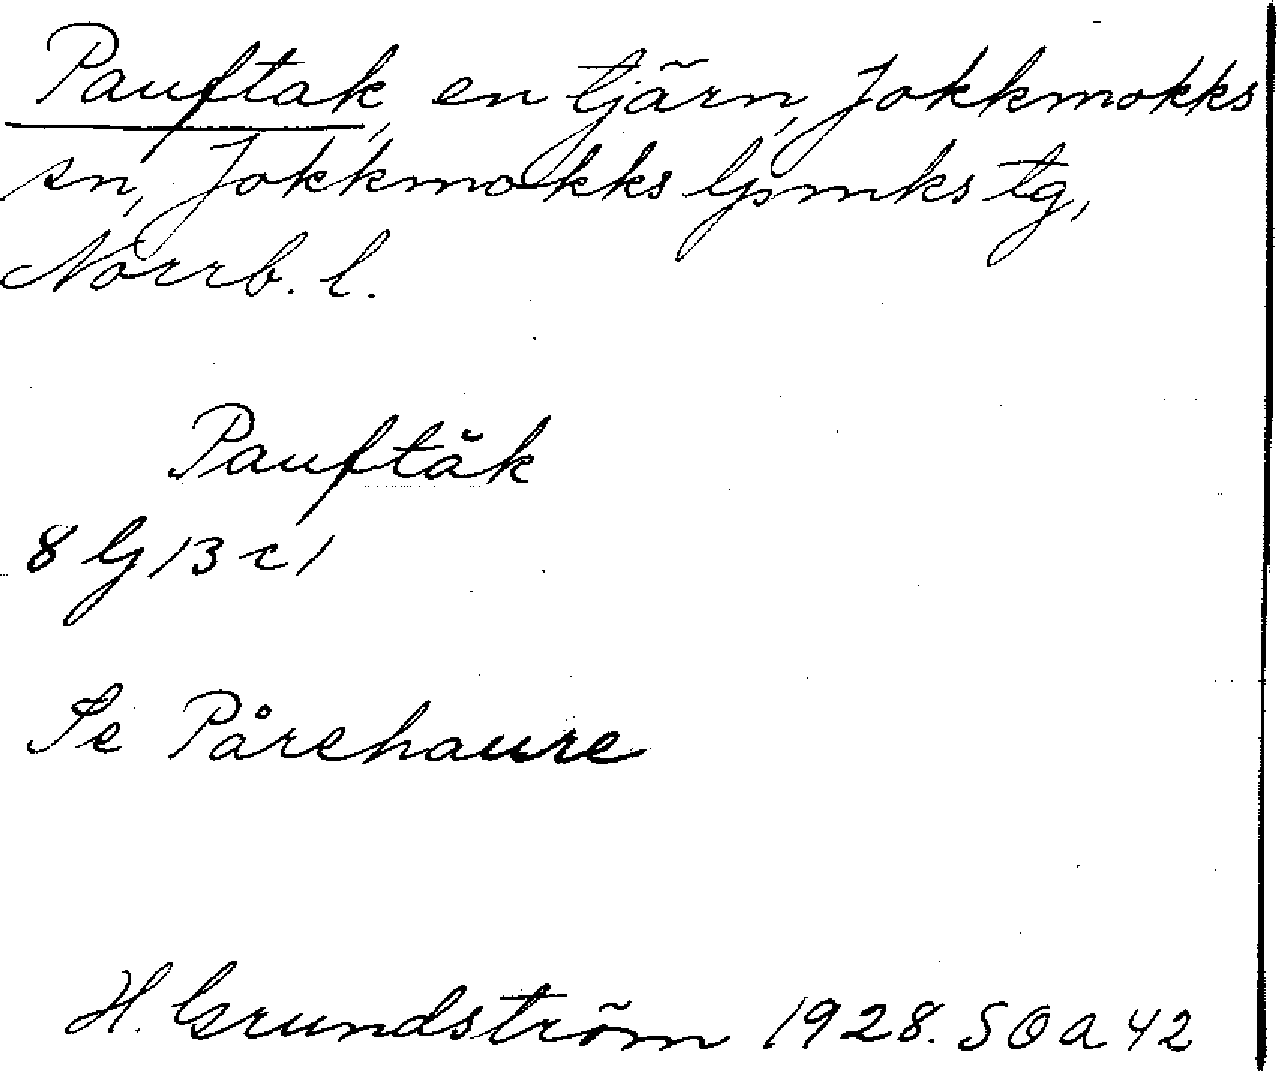 Pauftak, en tjärn, Jokkmokks
sn, Jokkmokks lpmks tg,
Norrb. l.
Pauftăk
8 G 13 c 1
Se Pårehaure
H. Grundström 1928. SOA 42